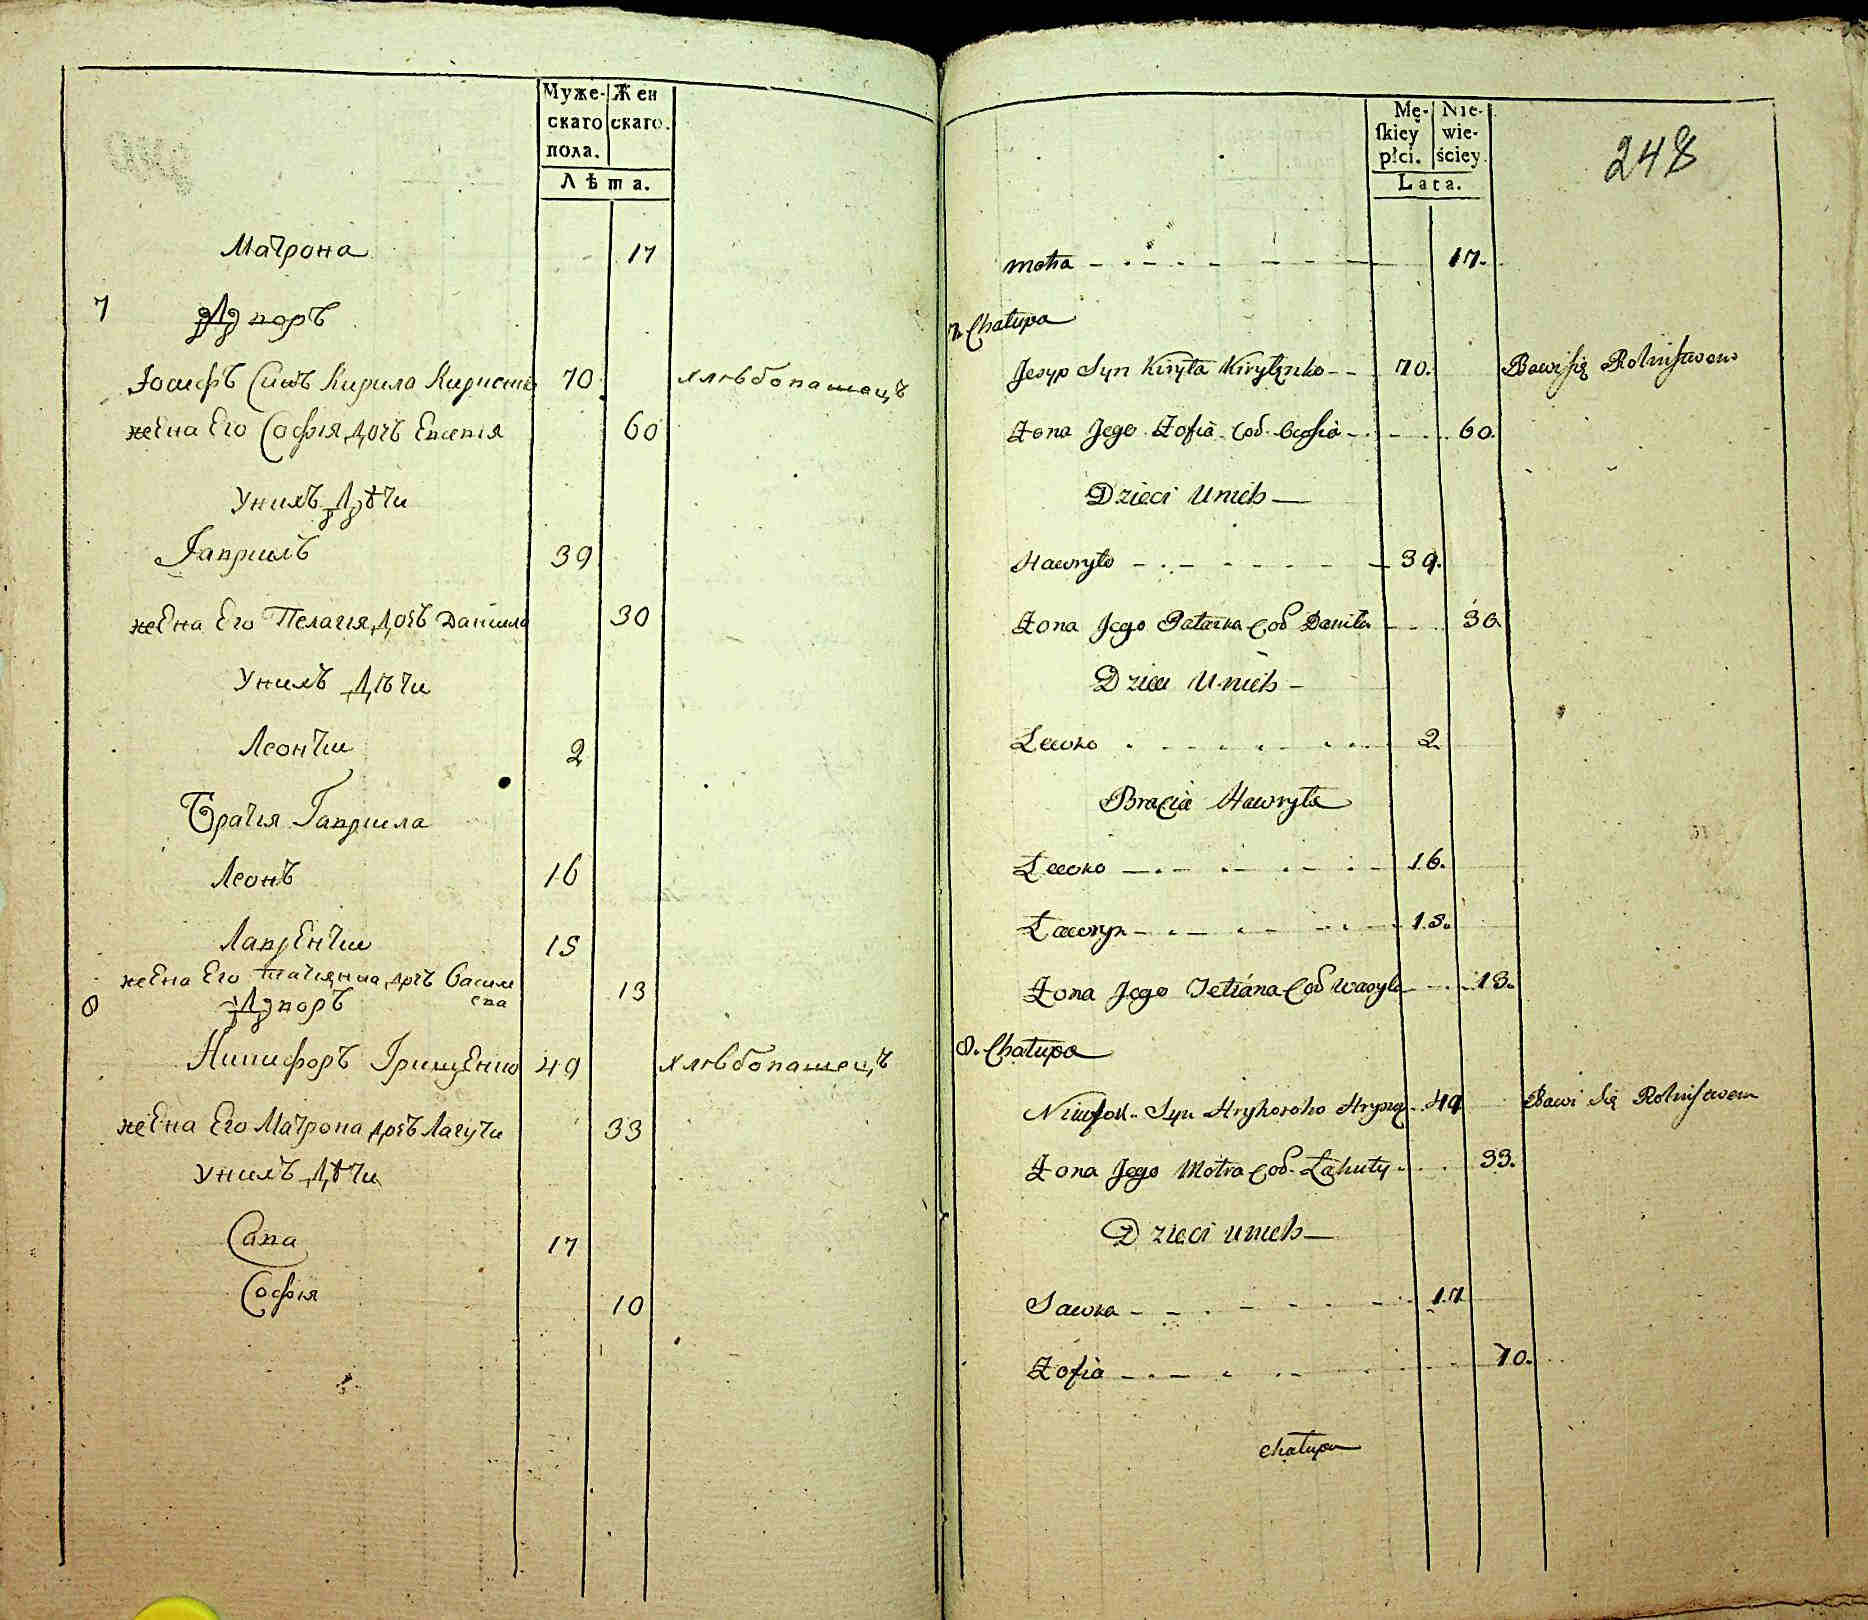 Муже- Жен
скаго скаго.
пола.
Лѣта.
Матрона 17
7 Дворъ
Іосифъ Синъ Кирила 70 хлѣбопашецъ
жена Его Софія дочь Евсевія 60
Унихъ Дѣти
Гавриилъ 39
жена Его Пелагія дочь Даниила 30
Унихъ Дѣти
Леонтии 2
Братія Гавриила
Леонъ 16
Лаврентии 15
жена Его татіянна дочь Василе
ва 13
8 Дворъ
Никифоръ Грищенко 49 хлѣбопашецъ
жена Его Матрона дочь Лагути 33
Унихъ Дѣти
Сава 17
Софія 10
Mę- Nie-
ſkiey wie-
płci. ściey.
Lata.
248
Motra 17.
7. Chałupa
Jesyp Syn Kiryła Kiryłęnko 70. Bawi się Rolnistwem
Żona Jego Zofia Cod. 60.
Dzieci Unich
Hawryło 39.
Żona Jego Pałazka Cod Daniła 30
Dzieci Unich
Lewko 2.
Bracia Hawryła
Lewko 16.
Ławryn 15.
Żona Jego Tetiana Cod Wasyla 13.
8. Chałupa
Syn Hryhoroho 49 Bawi się Rolnistwem
Żona Jego Motra Cod. Łahuty 33.
Dzieci unich
Sawka 17
Zofia 10.
chałupa